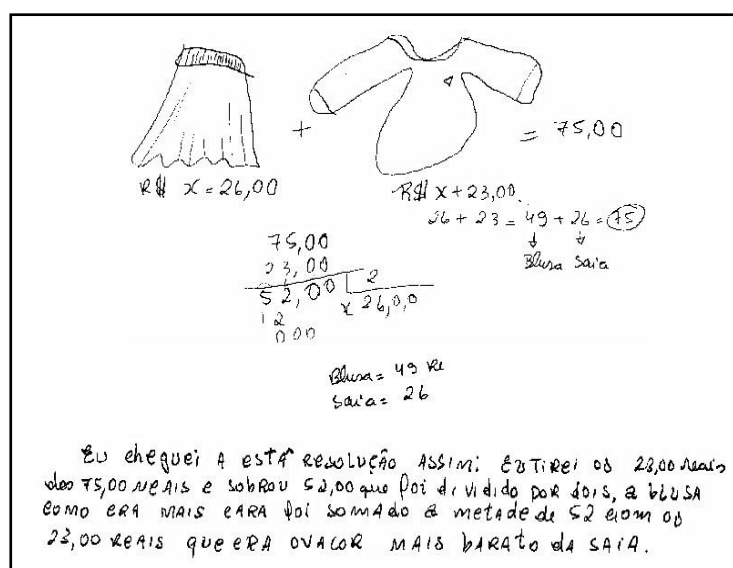 = 75,00
R$ x = 26,00
R$ x + 23,00.
26 + 23 = 49 + 26 = 75
Blusa Saia
75,00
23,00
52,00 2
12 x 26,0,0
000
Blusa = 49 Re
Saia = 26
EU cheguei A estÁ RESOLUÇÃO ASSIM: EU TIREI OS 23,00 reais
dos 75,00 REAIS e SOBROU 52,00 que foi dividido por dois, a bLUSA
COMO ERA MAIS CARA foi somado a metade de 52 com os
23,00 REAIS que ERA O VALOR MAIS bARATO DA SAIA.